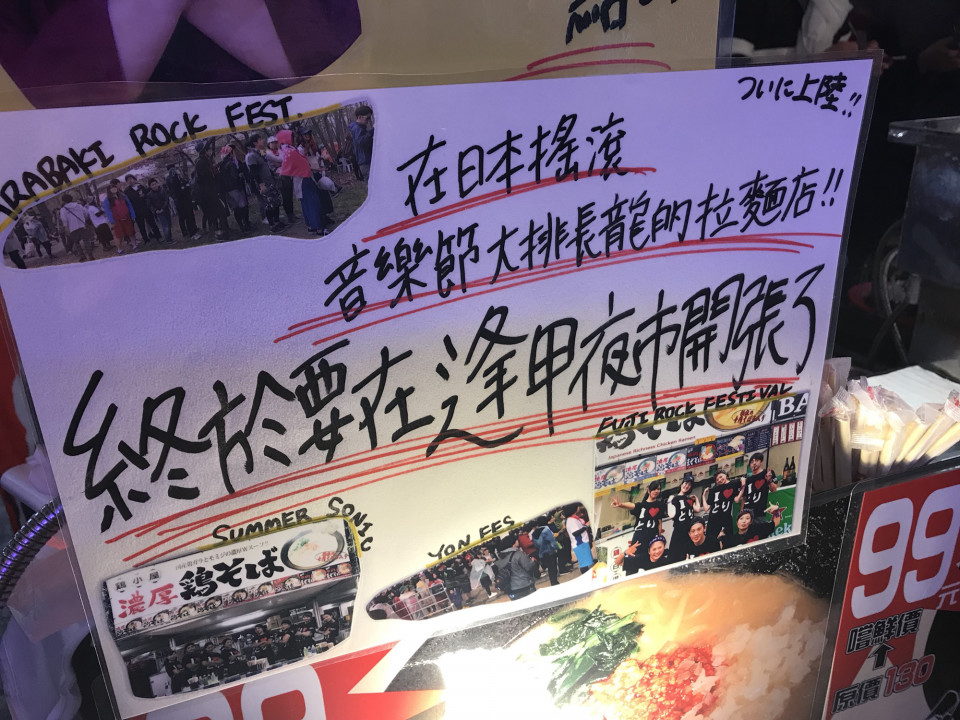 ついに上陸!!
ARABAKI ROCK FEST.
在日本搖滾
音樂節大排長龍的拉麵店!!
終於要在逢甲夜市開張了
FUJI ROCK FESTIVAL
鶏そば
Japanese Richness Chicken Ramen
I とり
SUMMER SONIC
鶏小屋
濃厚鶏そば
YON FES
99元
嚐鮮價
原價130